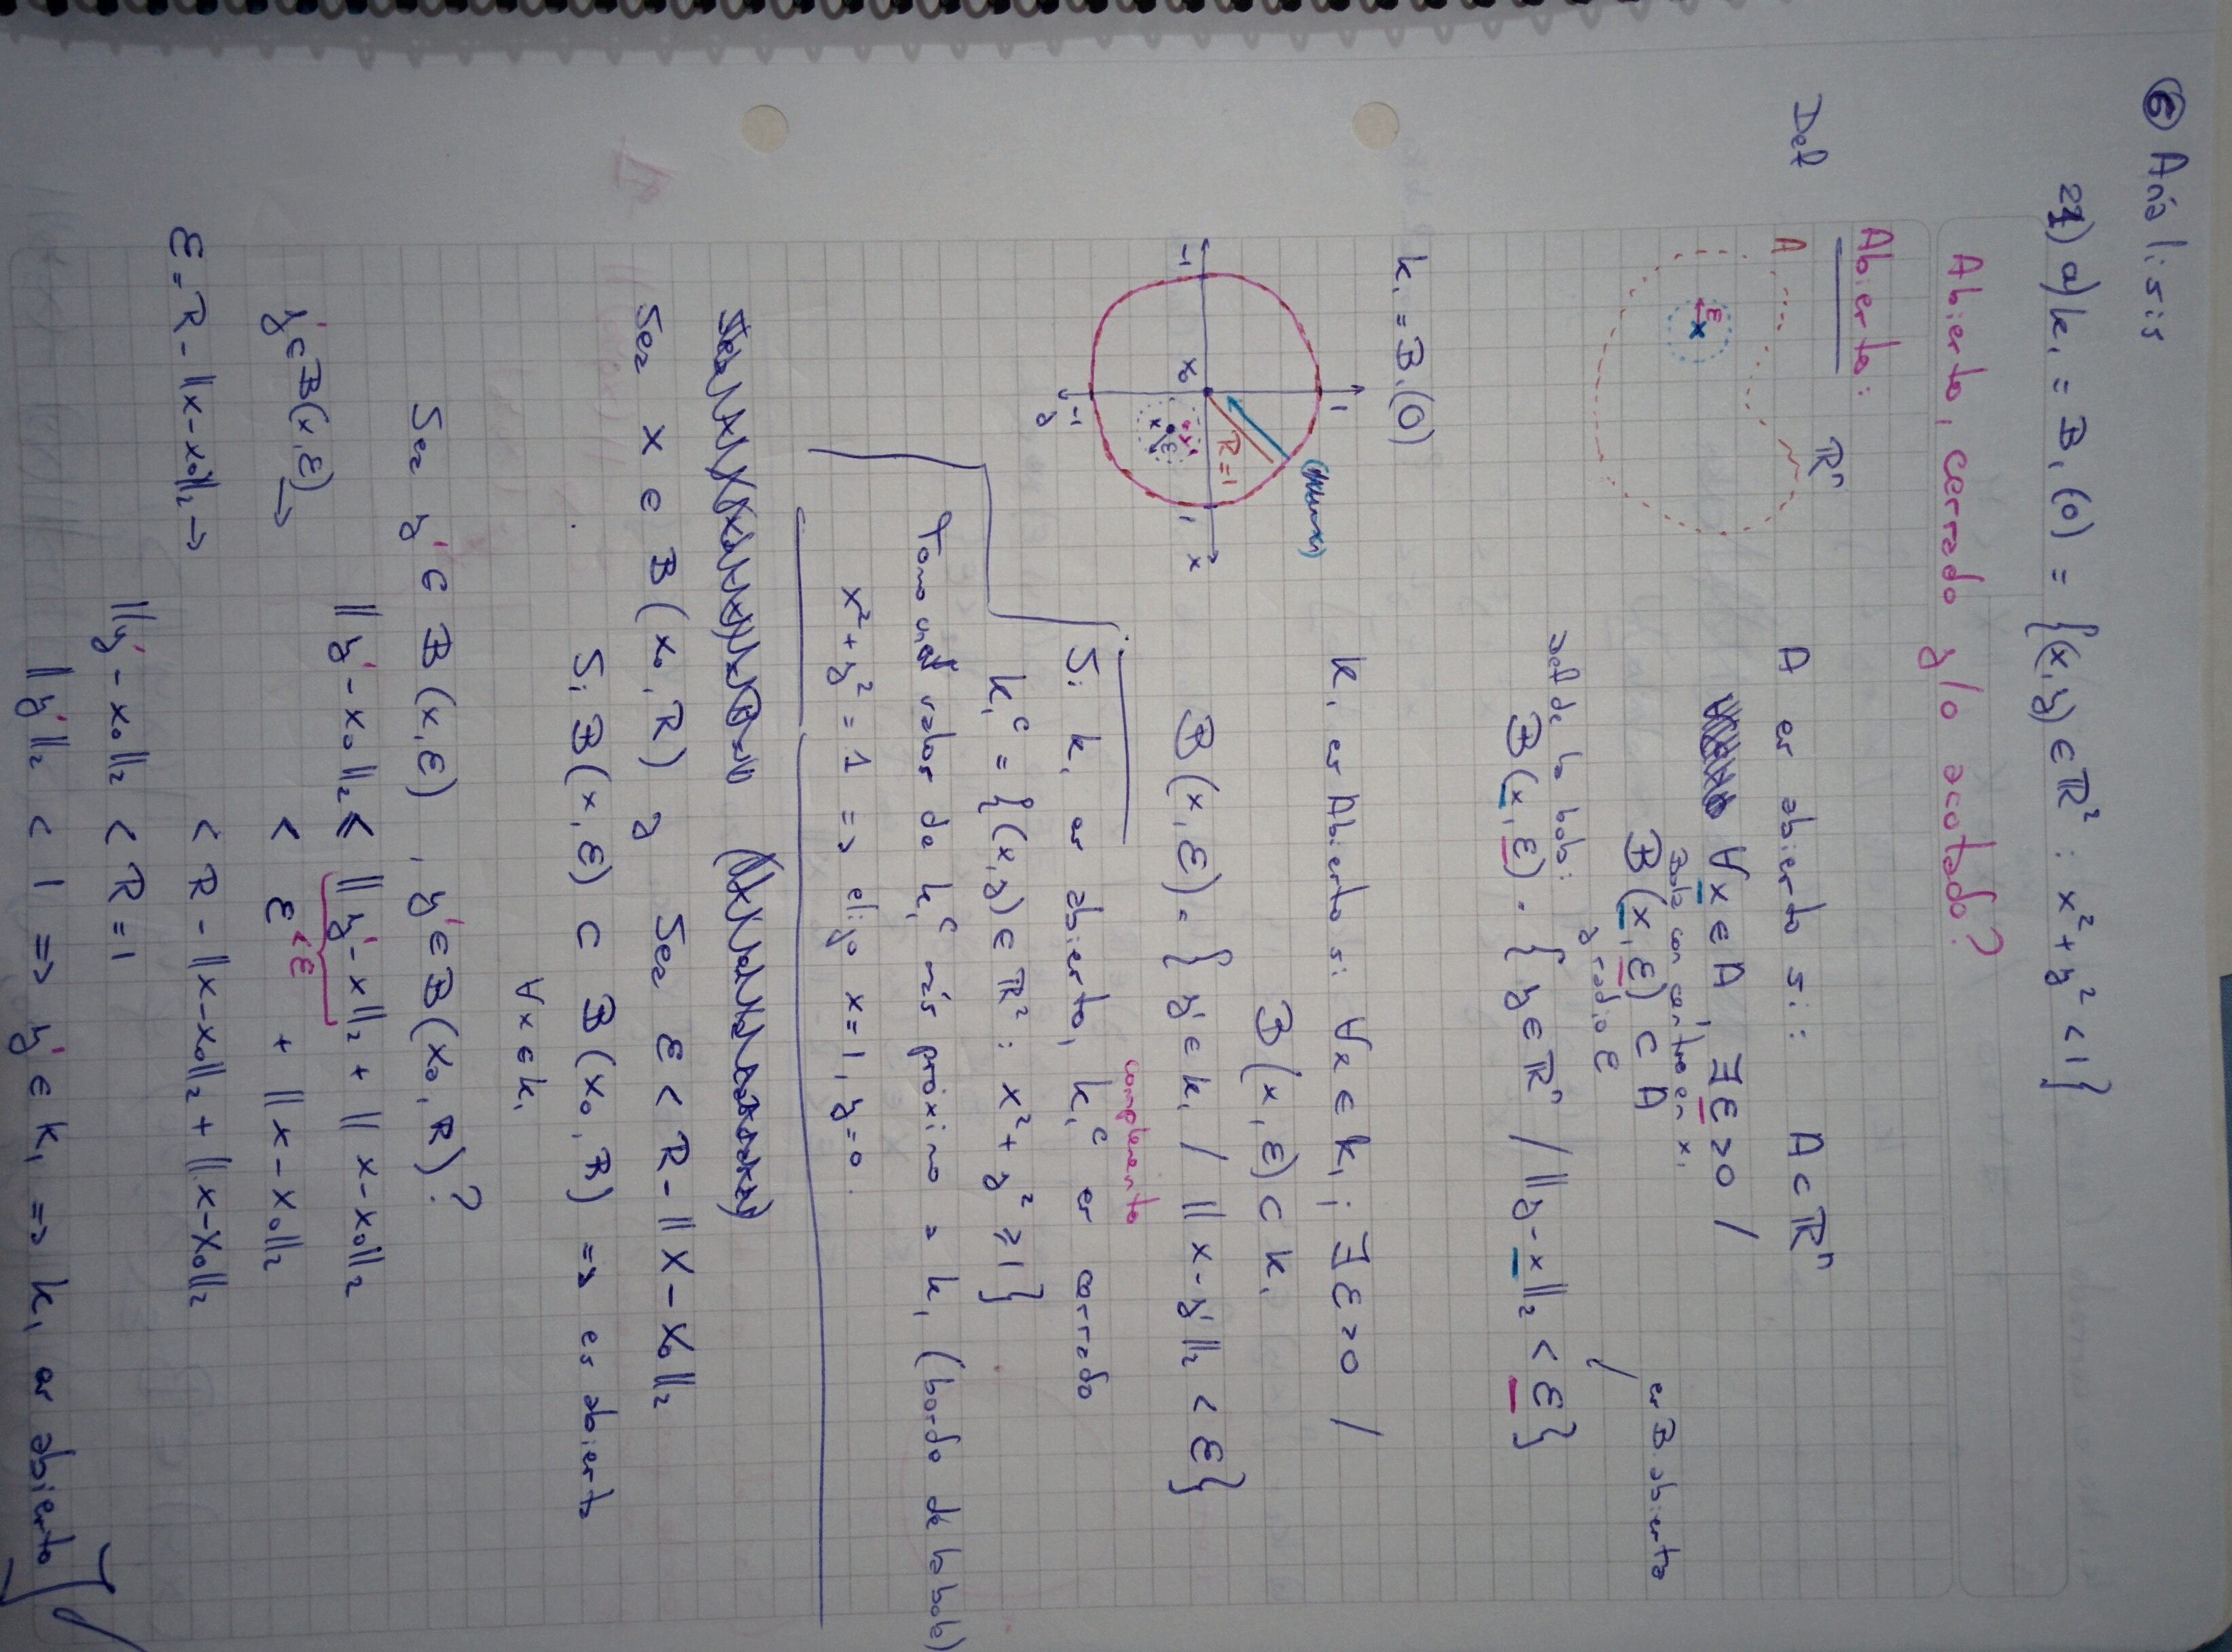 ⑥ Análisis
21) a) k₁ = B₁(0) = {(x,y) ∈ ℝ² : x² + y² < 1}
Abierto, cerrado y/o acotado?
Abierto:
Def
A
ℝⁿ
ε
x
A es abierto si: A ⊂ ℝⁿ
∀x ∈ A, ∃ε > 0 /
Bola con centro en x,
B(x, ε) ⊂ A
y radio ε
es B. abierta
Def de la bola:
B(x, ε) = {y ∈ ℝⁿ / ‖y - x‖₂ < ε}
k₁ = B₁(0)
1
R=1
-1 x₀ 1 x
y'
x ε
-1
y
K₁ es Abierto si ∀x ∈ k₁ ; ∃ε > 0 /
B(x, ε) ⊂ k₁
B(x, ε) = {y' ∈ k₁ / ‖x - y'‖₂ < ε}
complemento
Si k₁ es abierto, k₁ᶜ es cerrado
k₁ᶜ = {(x,y) ∈ ℝ² : x² + y² ≥ 1}
Tomo valor de k₁ᶜ más próximo a k₁ (borde de la bola)
x² + y² = 1 => elijo x=1, y=0.
Sea x ∈ B(x₀, R) y Sea ε < R - ‖x - x₀‖₂
Si B(x, ε) ⊂ B(x₀, R) => es abierto
∀x ∈ k₁
Sea y' ∈ B(x, ε) , y' ∈ B(x₀, R)?
‖y' - x₀‖₂ ≤ ‖y' - x‖₂ + ‖x - x₀‖₂
< ε
y' ∈ B(x, ε) → < ε + ‖x - x₀‖₂
ε = R - ‖x - x₀‖₂ → < R - ‖x - x₀‖₂ + ‖x - x₀‖₂
‖y' - x₀‖₂ < R = 1
‖y'‖₂ < 1 => y' ∈ k₁ => k₁ es abierto